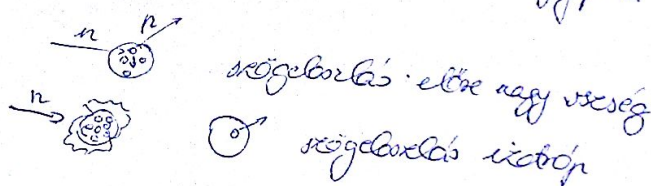 n n
szögeloszlás · előre nagy vszség
n
szögeloszlás izotróp